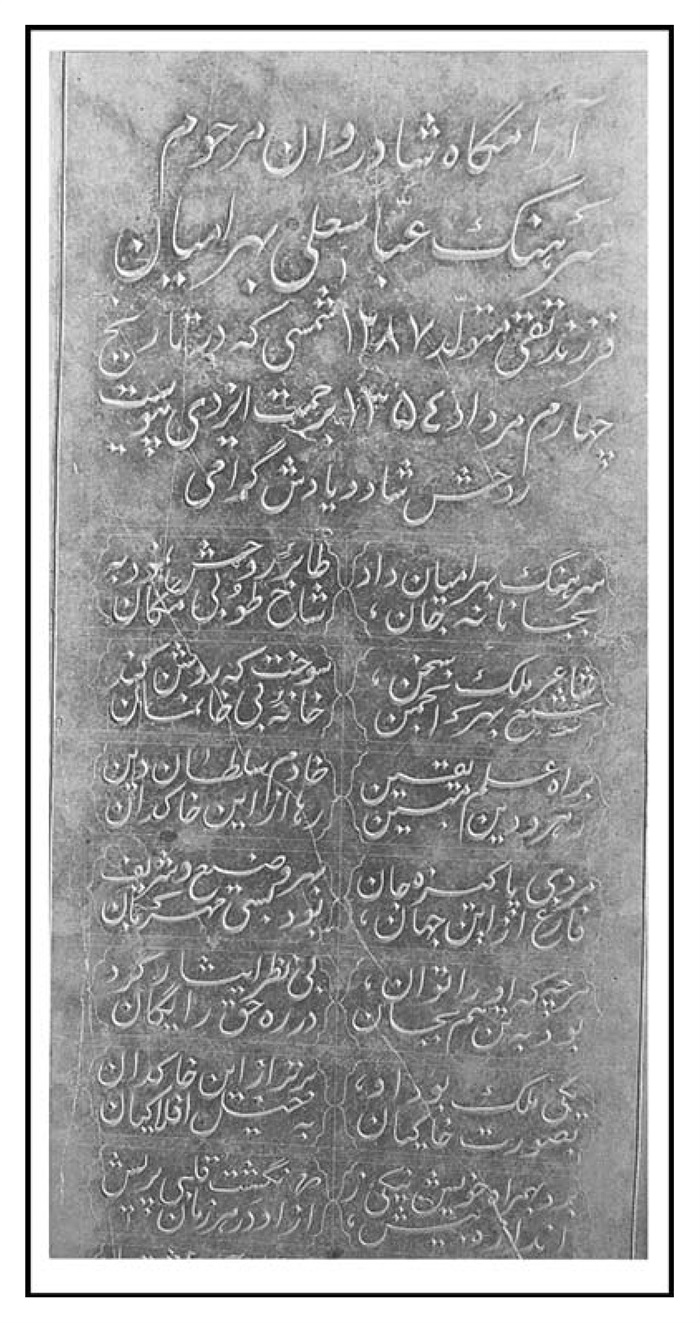 آرامگاه شادروان مرحوم
سرهنگ عبّاسعلی بهرامیان
فرزند تقی متولّد ۱۲۸۷ شمسی که در تاریخ
چهارم مرداد ۱۳۵۴ برحمت ایزدی پیوست
روحش شاد و یادش گرامی
سرهنگ بهرامیان داد طایر روحش بود به
بجانانه جان، شاخ طوبی مکان
شاعر ملک سخن، سوخت که روشن کند
شمع بهر انجمن خانهٔ بی خانمان
براه علم یقین خادم سلطان دین
رهرو دین مبین رها از این خاکدان
مردی پاکیزه جان بهر وضیع و شریف
فارغ از این جهان، بود بسی مهربان
هرچه که او را توان، بی نظر ایثار کرد
بود به تن هم بجان در ره حق رایگان
یکی ملک بود او، برتر از این خاکدان
بصورت خاکیان به خیل افلاکیان
برد بهمراه خویش نیکی ز نگشت قلبی پریش
از او در هر زمان